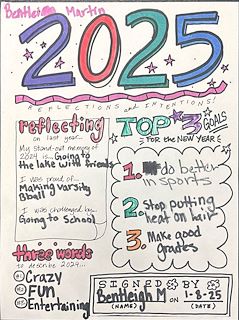 Bentleigh Martin
2025
REFLECTIONS and INTENTIONS!
reflecting
on last year...
My stand-out memory of
2024 is...Going to
the lake with friends
I was proud of...
Making varsity
Bball
I was challenged by...
Going to School
three words
to describe 2024...
#1 Crazy
#2 FUN
#3 Entertaining
TOP 3 GOALS
FOR the NEW YEAR
1. do better
in sports
2. Stop putting
heat on hair
3. Make good
grates
SIGNED BY
Bentleigh M on 1-8-25
(NAME) (DATE)